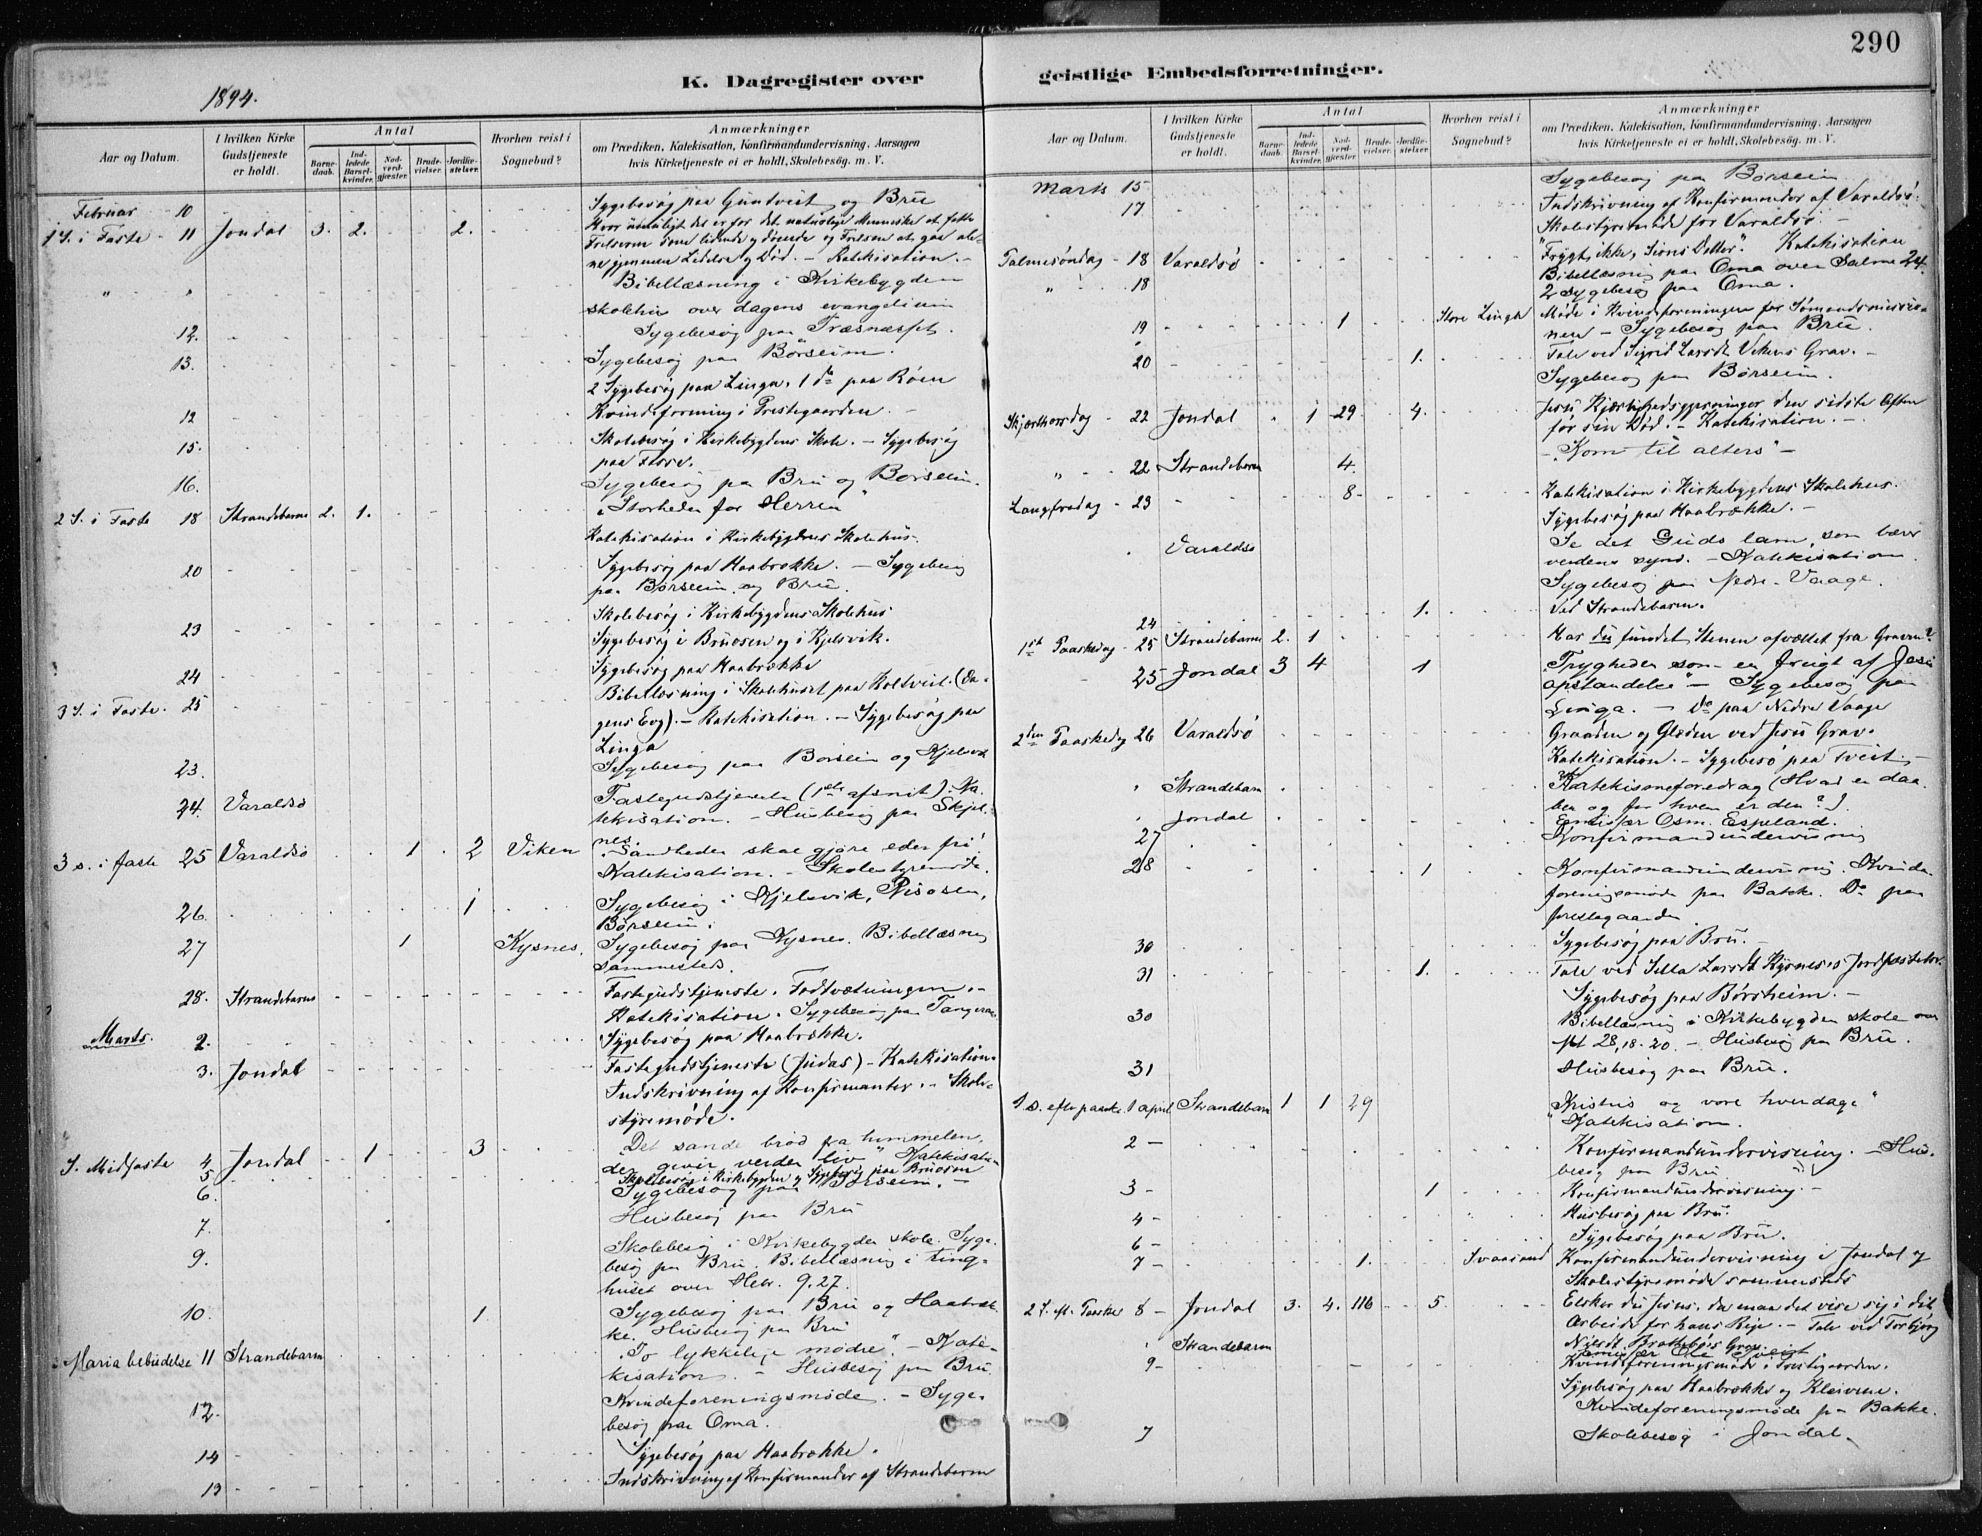 290
K. Dagregister over
geistlige Embedsforretninger.
1894.
Aar og Datum.
I hvilken Kirke Gudstjeneste er holdt.
Antal
Barnedaab.
Indledede Barselkvinder.
Nadverdgjæster.
Brudevielser.
Jordfæstelser.
Hvorhen reist i Sognebud?
Anmærkninger
om Prædiken, Katekisation, Konfirmandundervisning, Aarsagen
hvis Kirketjeneste ei er holdt, Skolebesøg. m. V.
Februar 10 Sygebesøg paa Gundveit og Bru
1 S. i Faste 11 Jondal 3. 2. 2. Hvor umuligt det er for det naturlige Menneske at fatte
Frelseren som lidende og døende og Frelsen at gaa ale-
ne gjennem Lidelse og Død. - Katekisation. -
" " Bibellæsning i Kirkebygden
skolehus over dagens evangelium
12. Sygebesøg paa Træsnæsset.
13. Sygebesøg paa Børseim.
2 Sygebesøg paa Linga, 1 do paa Røen
12 Kvindeforening i Prestegaarden. -
15. Skolebesøg i Kirkebygdens Skole. - Sygebesøg
paa Fosse.
16. Sygebesøg paa Bru og Børseim.
2 S. i Faste 18 Strandebarm 2. 1. "Storheden for Herren"
Katekisation i Kirkebygdens Skolehus.
20 Sygebesøg paa Haabrække. - Sygebesøg
paa Børseim og Bru.
Skolebesøg i Kirkebygdens Skolehus
23 Sygebesøg i Bruosen og i Kjelsvik.
24 Sygebesøg paa Haabrække
3 S. i Faste. 25 Bibellæsning i Skolehuset paa Koltveit. (Da-
gens Evg). - Katekisation. - Sygebesøg paa
Linga
23. Sygebesøg paa Børseim og Kjelsvik
24. Varaldsø Fastegudstjeneste (1ste afsnit). Ka-
tekisation. - Husbesøg paa Skjel-
nes.
3 s. i faste 25 Varaldsø 1 2 Viken "Sandheden skal gjøre eder fri"
Katekisation. - Skolestyremøde.
26. 1 Sygebesøg i Kjelsvik, Risosen,
Børseim.
27 1 Kysnes. Sygebesøg paa Kysnes. Bibellæsning
sammesteds.
28. Strandebarm Fastegudstjeneste. Fodtvætningen. -
Katekisation. Sygebesøg paa Tangeraas
Marts. 2. Sygebesøg paa Haabrække.
3. Jondal Fastegudstjeneste (Judas) - Katekisation.
Indskrivning af Konfirmanter. - Skole-
styremøde.
S. Midfaste 4 Jondal 1 3 "Det sande brød fra himmelen,
der giver verden liv" Katekisation
5 Skolebesøg i Kirkebygden og Sygebesøg paa Bruosen
6. Sygebesøg paa Børseim. -
7. Husbesøg paa Bru
9. Skolebesøg i Kirkebygden skole. Syge-
besøg paa Bru. Bibellæsning i ting-
huset over Hebr. 9.27.
10. 1 Sygebesøg paa Bru og Haabræk-
ke. Husbesøg paa Bru
Maria bebudelse 11 Strandebarm "To lykkelige mødre". - Kate-
kisation. - Husbesøg paa Bru
12. Kvindeforeningsmøde. - Syge-
besøg paa Oma.
14 Sygebesøg paa Haabrække.
13 Indskrivning af Konfirmander af Strandebarm
Aar og Datum.
I hvilken Kirke Gudstjeneste er holdt.
Antal
Barnedaab.
Indledede Barselkvinder.
Nadverdgjæster.
Brudevielser.
Jordfæstelser.
Hvorhen reist i Sognebud?
Anmærkninger
om Prædiken, Katekisation, Konfirmandundervisning, Aarsagen
hvis Kirketjeneste ei er holdt, Skolebesøg. m. V.
Marts 15 Sygebesøg paa Børseim
17 Indskrivning af Konfirmander af Varaldsø.
Skolestyremøde for Varaldsø -
Palmesøndag 18 Varaldsø "Frygt ikke, Sions Datter". Katekisation
" 18 Bibellæsning paa Oma over Salme 24.
2 Sygebesøg paa Oma.
19 1 Store Linga Møde i Kvindeforeningen for Sømandsmissio-
nen - Sygebesøg paa Bru.
20 1. Tale ved Sigrid Larsdt Vikens Grav. -
Sygebesøg paa Børseim.
Skjærthorsdag 22 Jondal 1 29 4. Jesu Kjærlighedsgjerninger den sidste Aften
før sin Død. - Katekisation. -
" 22 Strandebarm 4. - "Kom til alters" -
Langfredag 23 8 Katekisation i Kirkebygdens Skolehus.
Sygebesøg paa Haabrække. -
Varaldsø Se det Guds lam, som bærer
verdens synd. - Katekisation
Sygebesøg paa Nedre-Vaage.
24 1. Ved Strandebarm.
1ste Paaskedag 25 Strandebarm 2. 1 Har du fundet Stenen afvæltet fra Graven?
25 Jondal 3 4 1 Trygheden som en frugt af Jesu
opstandelse" - Sygebesøg paa
Linga. - Do paa Nedre Vaage
2den Paaskedag 26 Varaldsø Graaden og Glæden ved Jesu Grav.
Katekisation. - Sygebesø paa Tveit. -
" Strandebarm Katekisneforedrag (Hvad er daa-
ben og for hvem er den?).
" Jondal Emissær Osm. Espeland.
27 Konfirmandundervisning
28 1 Konfirmandundervisning. Kvinde-
foreningsmøde paa Bakke. Do paa
prestegaarden
30 Sygebesøg paa Bru. -
31 1. Tale ved Larsdt Kysnes's Jordfæstelse.
Sygebesøg paa Børsheim. -
30 Bibellæsning i Kirkebygden skole over
Mt 28,18-20. - Husbesøg paa Bru.
31 Husbesøg paa Bru.
1 s. efter paaske 1 april Strandebarm 1 1 29 "Kristus og vore hverdage"
Katekisation.
2 - Konfirmandundervisning. - Hus-
besøg paa Bru
3 - 1 Konfirmandundervisning. -
4 - Husbesøg paa Bru.
6 - Sygebesøg paa Bru.
7 - 1. Svaasand Konfirmandundervisning i Jondal og
Skolestyremøde sammesteds
2 S. e. Paaske 8 - Jondal 3. 4. 116 5. Elsker du Jesus, da maa det vise sig i dit
Arbeide for hans Rige. - Tale ved Torbjørg
Grav.
Strandebarm
9 - Kvindeforeningsmøde i Prestegaarden.
Sygebesøg paa Haabrække og Kleivene.
Kvindeforeningsmøde paa Bakke.
7 Skolebesøg i Jondal.